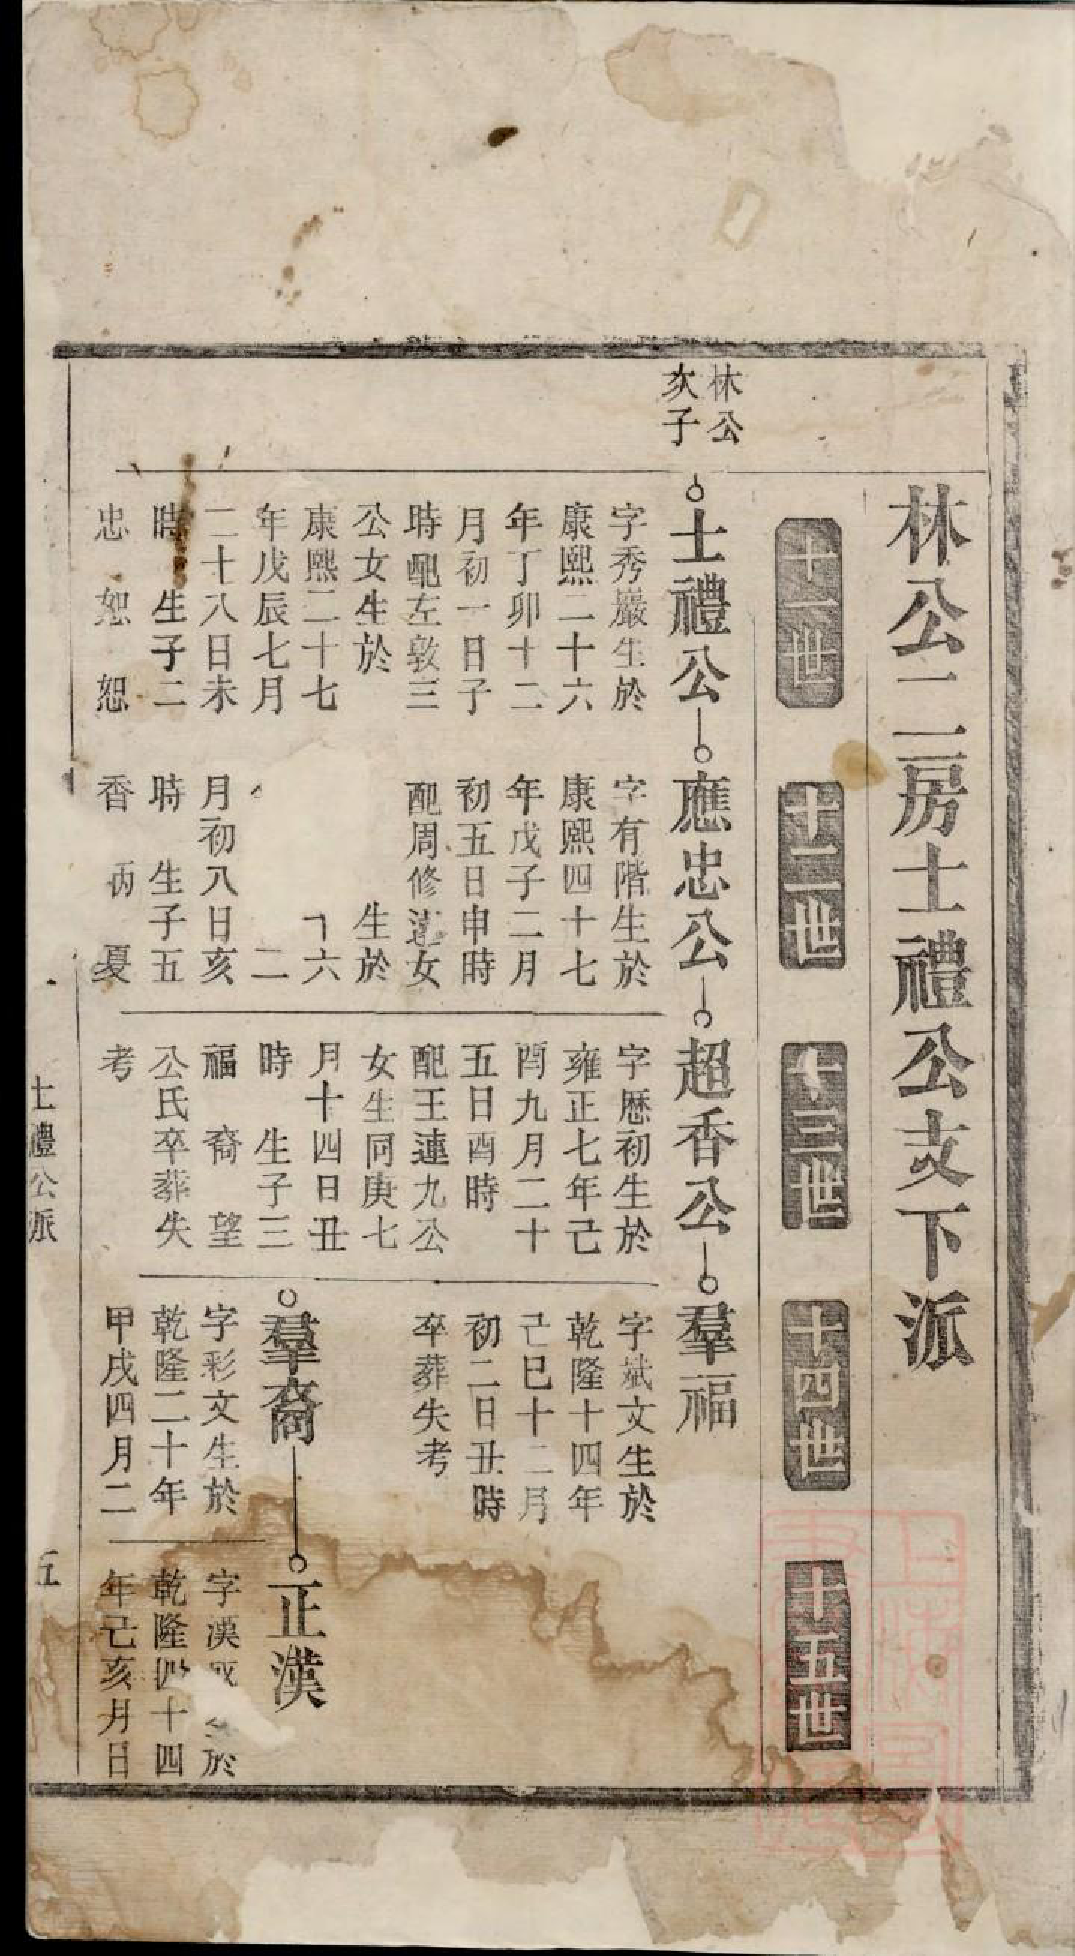 林公二房士禮公支下派
十一世
十二世
十三世
十四世
十五世
林公
次子
士禮公
字秀巖生於
康熙二十六
年丁卯十二
月初一日子
時配左敦三
公女生於
康熙二十七
年戊辰七月
二十八日未
時 生子二
忠 恕
應忠公
字有階生於
康熙四十七
年戊子二月
初五日申時
配周修 女
生於
六
二
月初八日亥
時 生子五
香 夏
超香公
字歷初生於
雍正七年己
酉九月二十
五日酉時
配王連九公
女生同庚七
月十四日丑
時 生子三
福 裔 望
公氏卒葬失
考
羣福
字斌文生於
乾隆十四年
己巳十二月
初二日丑時
卒葬失考
羣裔
字彩文生於
乾隆二十年
甲戌四月二
正漢
字漢 於
乾隆四十四
年己亥月日
士禮公派
五